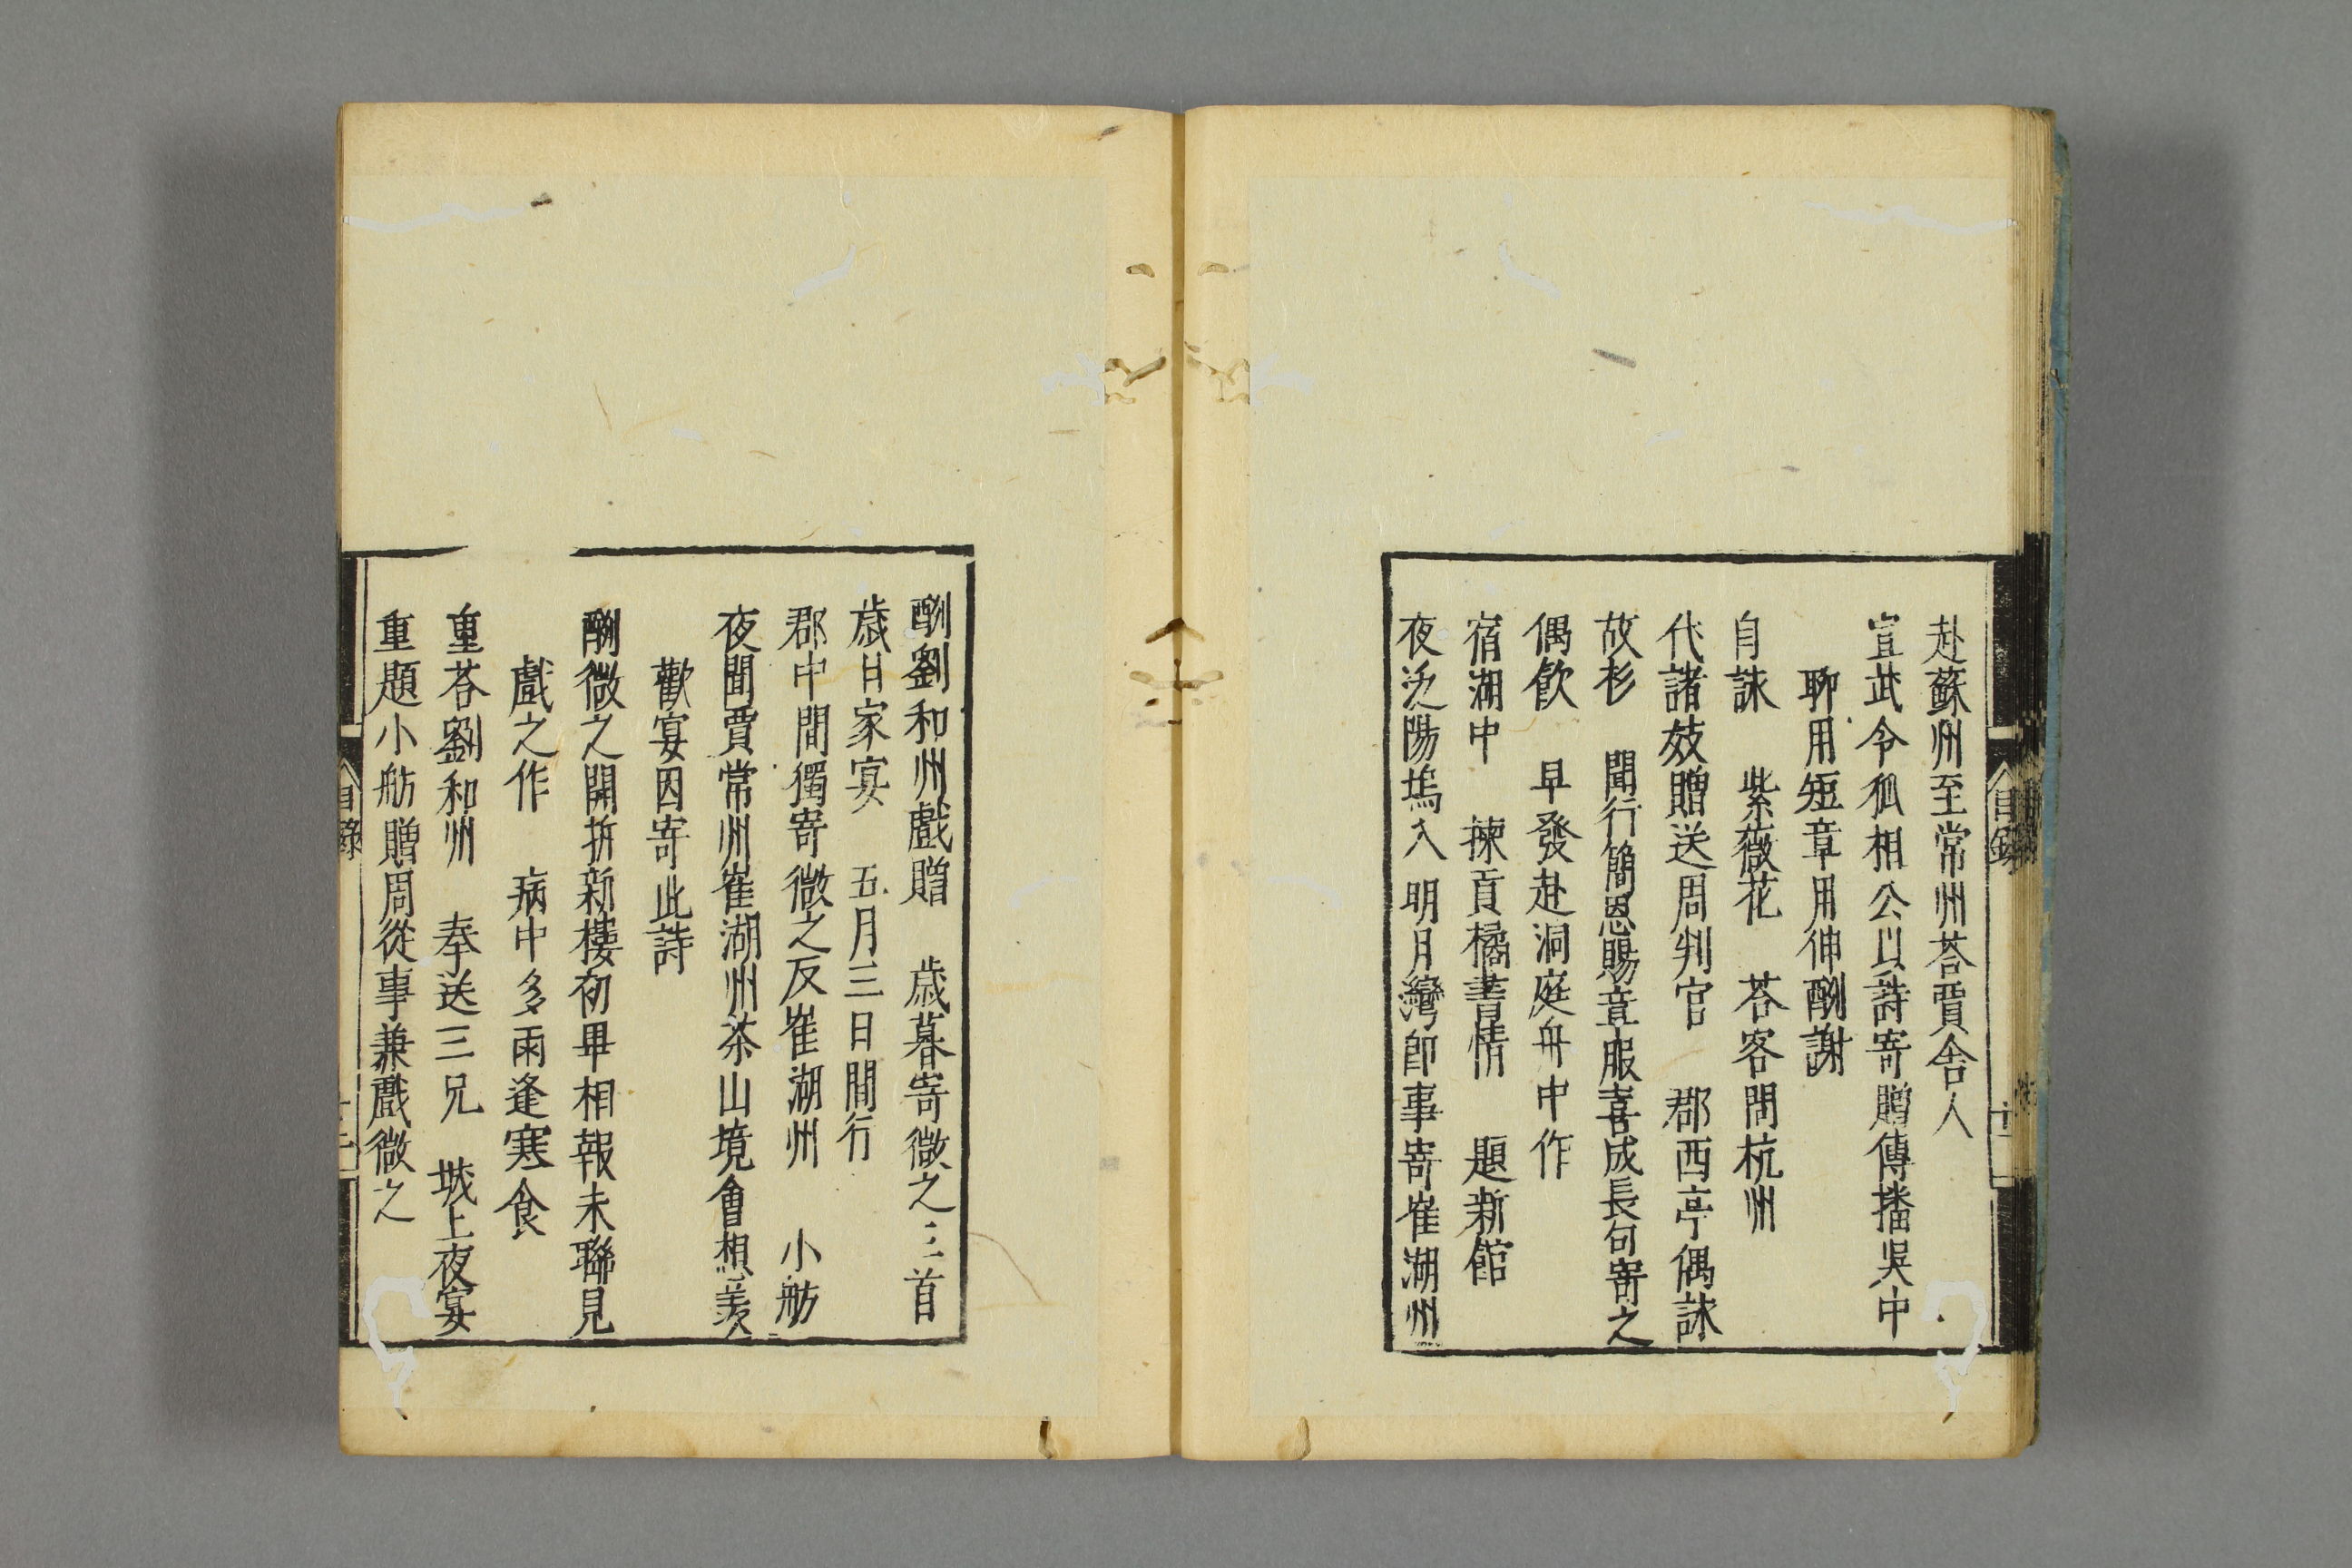 赴蘇州至常州荅賈舍人
宣武令狐相公以詩寄贈傳播吳中
聊用短章用伸酬謝
自詠　紫薇花　荅客問杭州
代諸妓贈送周判官　郡西亭偶詠
故衫　聞行簡恩賜章服喜成長句寄之
偶飲　早發赴洞庭舟中作
宿湖中　揀貢橘書情　題新館
夜泛陽塢入明月灣即事寄崔湖州
酬劉和州戲贈　歲暮寄微之三首
歲日家宴　五月三日閒行
郡中閒獨寄微之反崔湖州　小舫
夜聞賈常州崔湖州茶山境會想羨
歡宴因寄此詩
酬微之開拆新樓初畢相報未聯見
戲之作　病中多雨逢寒食
重荅劉和州　奉送三兄　城上夜宴
重題小舫贈周從事兼戲微之
目錄